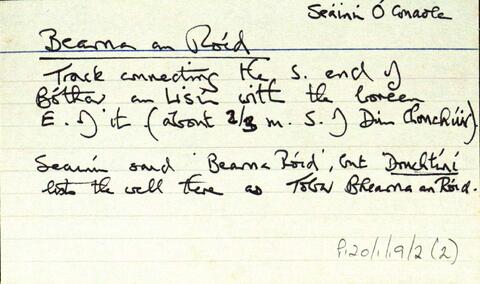 Seáinín Ó Conaole
Bearna an Róid
Track connecting the S. end of
Bóthar an Lisín with the boreen
E. of it (about 2/3 m. S. of Dún Chonchúir)
Seáinín said 'Bearna Róid', but
the well there as Tobar Bhearna an Róid.
P120/1/9/2 (2)